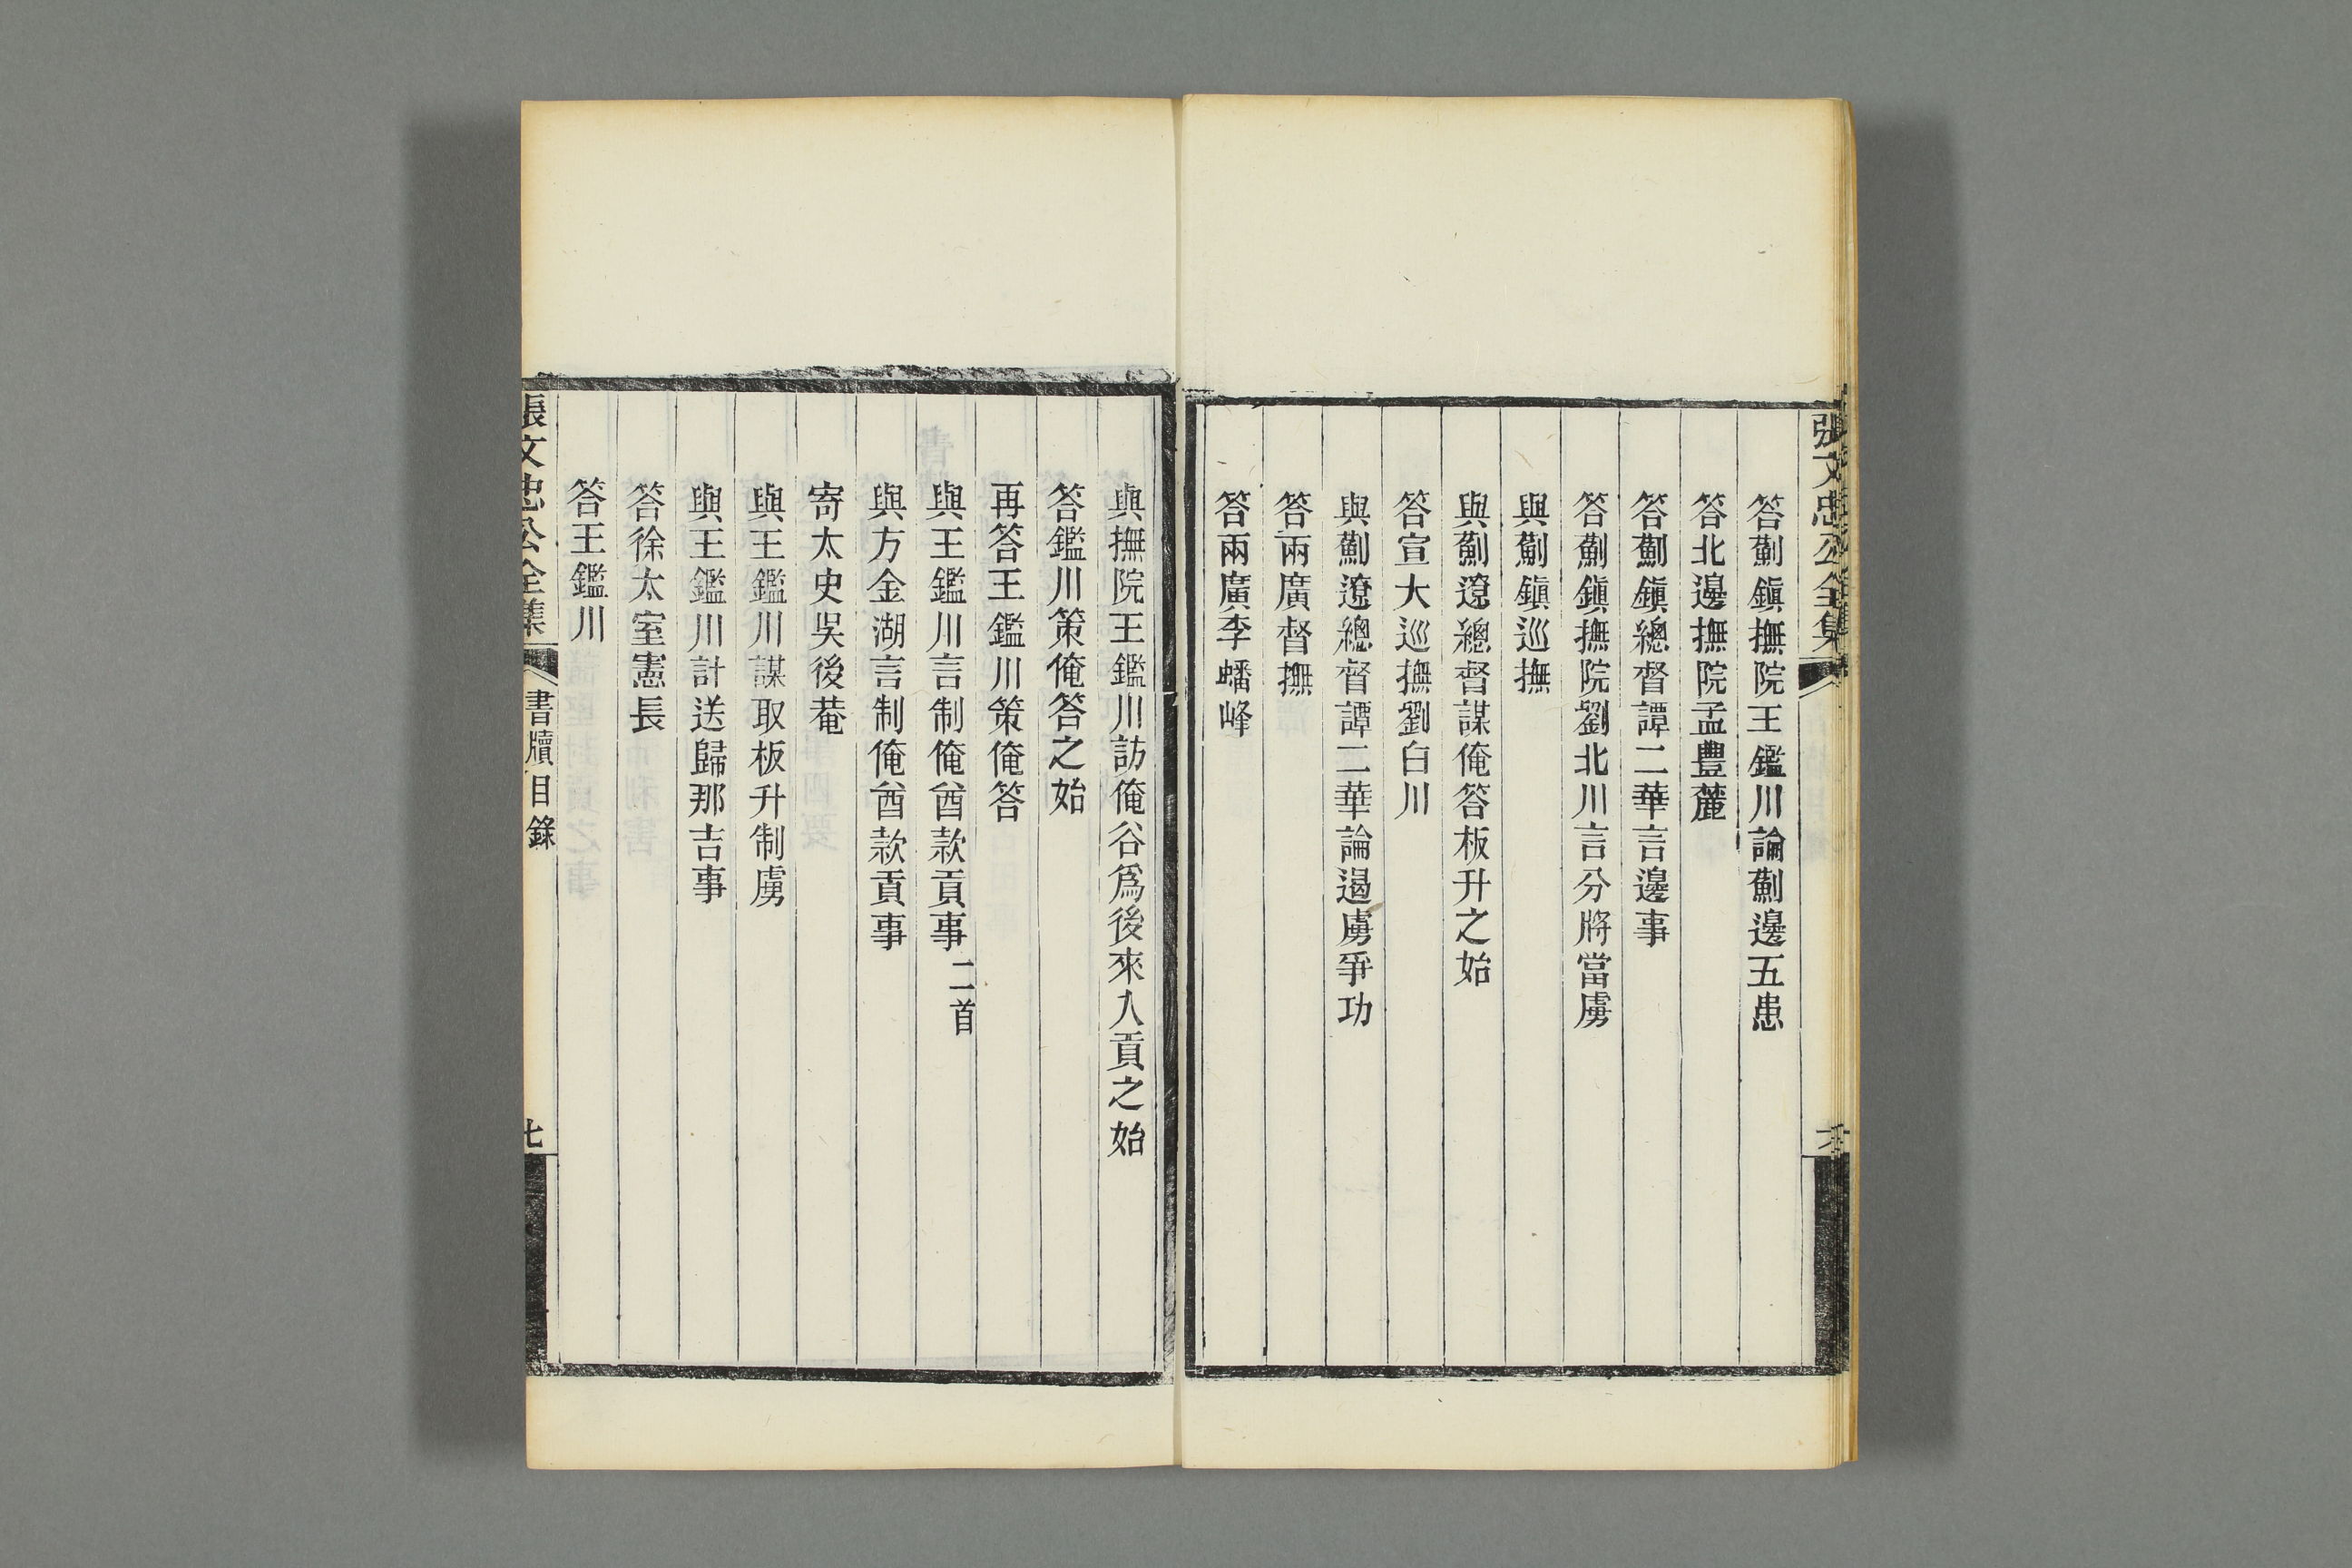 張文忠公全集
答薊鎭撫院王鑑川論薊邊五患
答北邊撫院孟豊麓
答薊鎭總督譚二華言邊事
答薊鎭撫院劉北川言分將當虜
與薊鎭巡撫
與薊遼總督謀俺答板升之始
答宣大巡撫劉白川
與薊遼總督譚二華論遏虜爭功
答兩廣督撫
答兩廣李蟠峰
與撫院王鑑川訪俺谷爲後來入貢之始
答鑑川策俺答之始
再答王鑑川策俺答
與王鑑川言制俺酋款貢事二首
與方金湖言制俺酋款貢事
寄太史吳後菴
與王鑑川謀取板升制虜
與王鑑川計送歸那吉事
答徐太室憲長
答王鑑川
張文忠公全集 書牘目錄 七